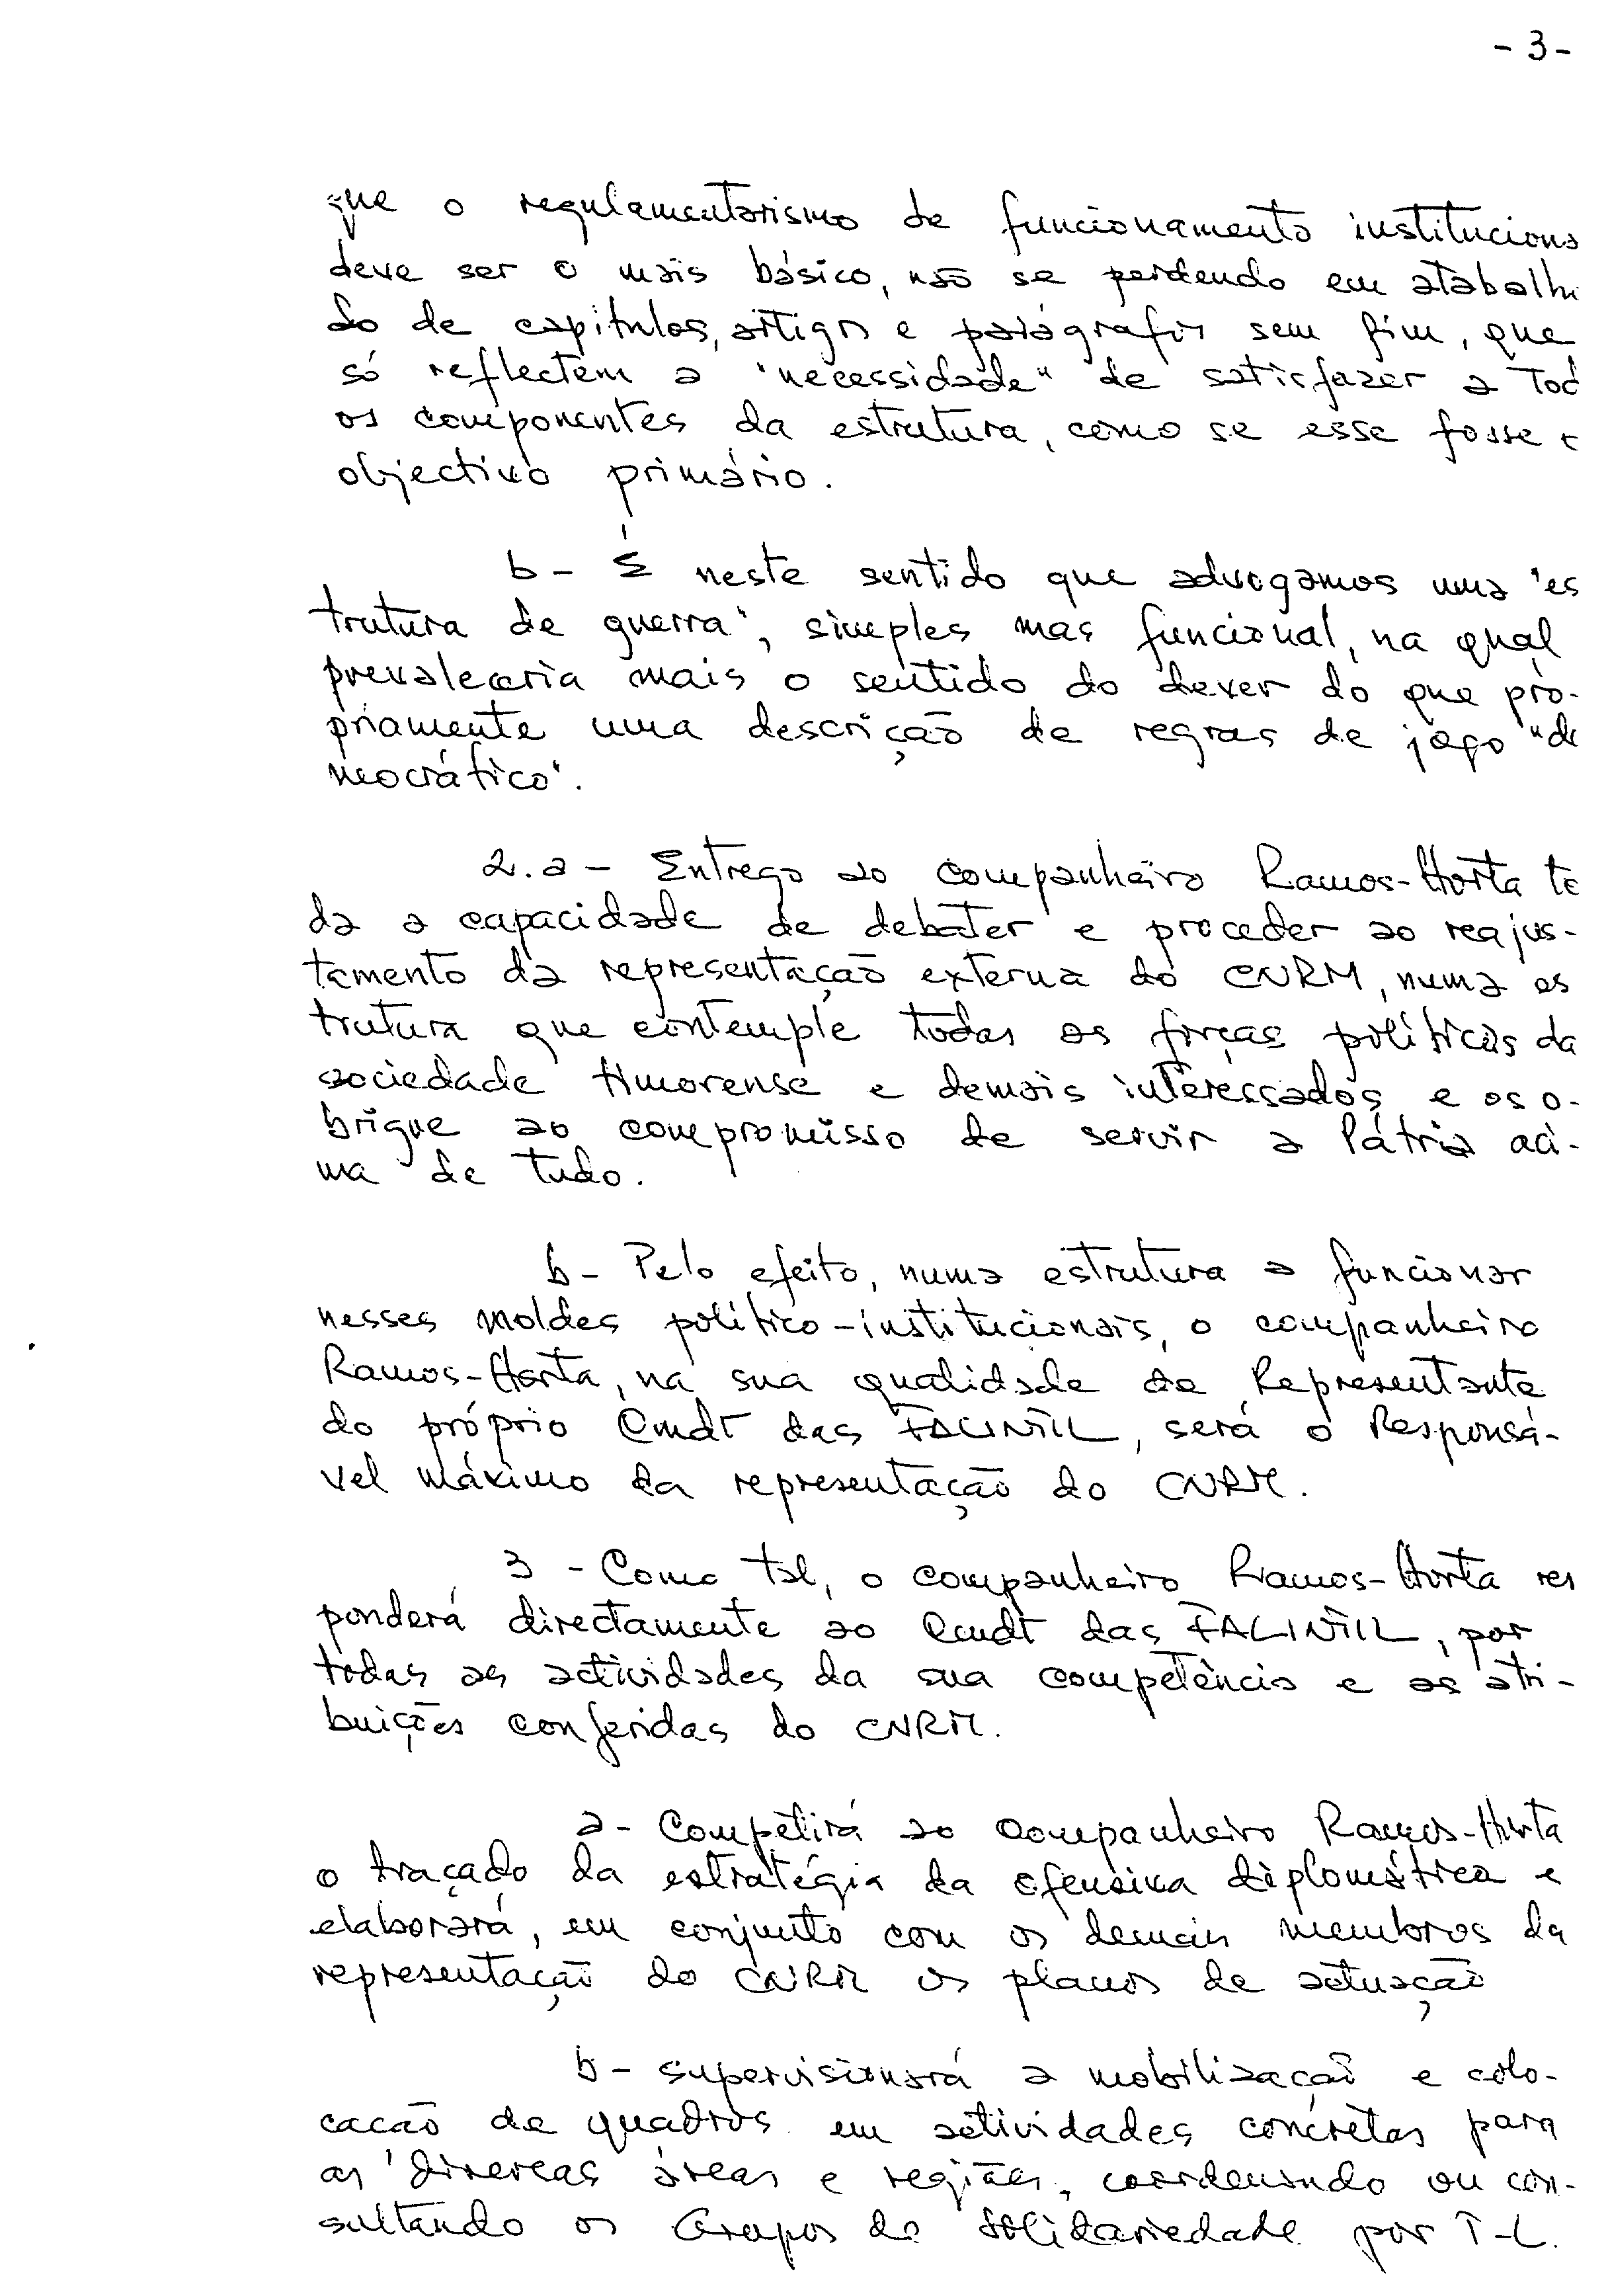 - 3 -
que o regulamentarismo de funcionamento instituciona
deve ser o mais básico, não se perdendo em atabalhu
do de capítulos, artigos e parágrafos sem fim, que
só reflectem a "necessidade" de satisfazer a tod
os componentes da estrutura, como se esse fosse o
objectivo primário.
b - É neste sentido que advogamos uma "es
trutura de guerra", simples mas funcional, na qual
prevaleceria mais o sentido do dever do que pro-
priamente uma descrição de regras de jogo "de
mocrático".
2.a - Entrego ao companheiro Ramos-Horta to
da a capacidade de debater e proceder ao reajus-
tamento da representação externa do CNRM, numa es
trutura que contemple todas as forças políticas da
sociedade timorense e demais interessados e os o-
brigue ao compromisso de servir a Pátria aci-
ma de tudo.
b - Pelo efeito, numa estrutura a funcionar
nesses moldes político-institucionais, o companheiro
Ramos-Horta, na sua qualidade de Representante
do próprio Cmdt das FALINTIL, será o Responsá-
vel máximo da representação do CNRM.
3 - Como tal, o companheiro Ramos-Horta res
ponderá directamente ao Cmdt das FALINTIL, por
todas as actividades da sua competência e as atri-
buições conferidas do CNRM.
a - Competirá ao companheiro Ramos-Horta
o traçado da estratégia da ofensiva diplomática e
elaborará, em conjunto com os demais membros da
representação do CNRM os planos de actuação
b - supervisionará a mobilização e colo-
cação de quadros em actividades concretas para
as diversas áreas e regiões, coordenando ou con-
sultando os Grupos de Solidariedade por T-L.